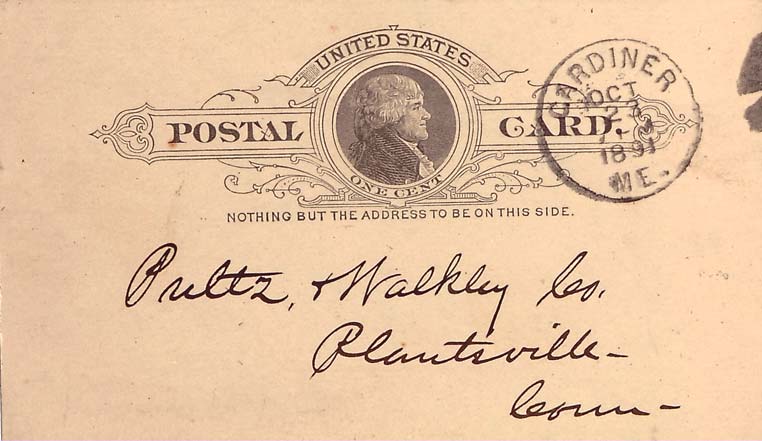 UNITED STATES
POSTAL CARD.
ONE CENT
NOTHING BUT THE ADDRESS TO BE ON THIS SIDE.
GARDINER
OCT
23
1891
ME.
Pultz, & Walkley Co.
Plantsville
Conn